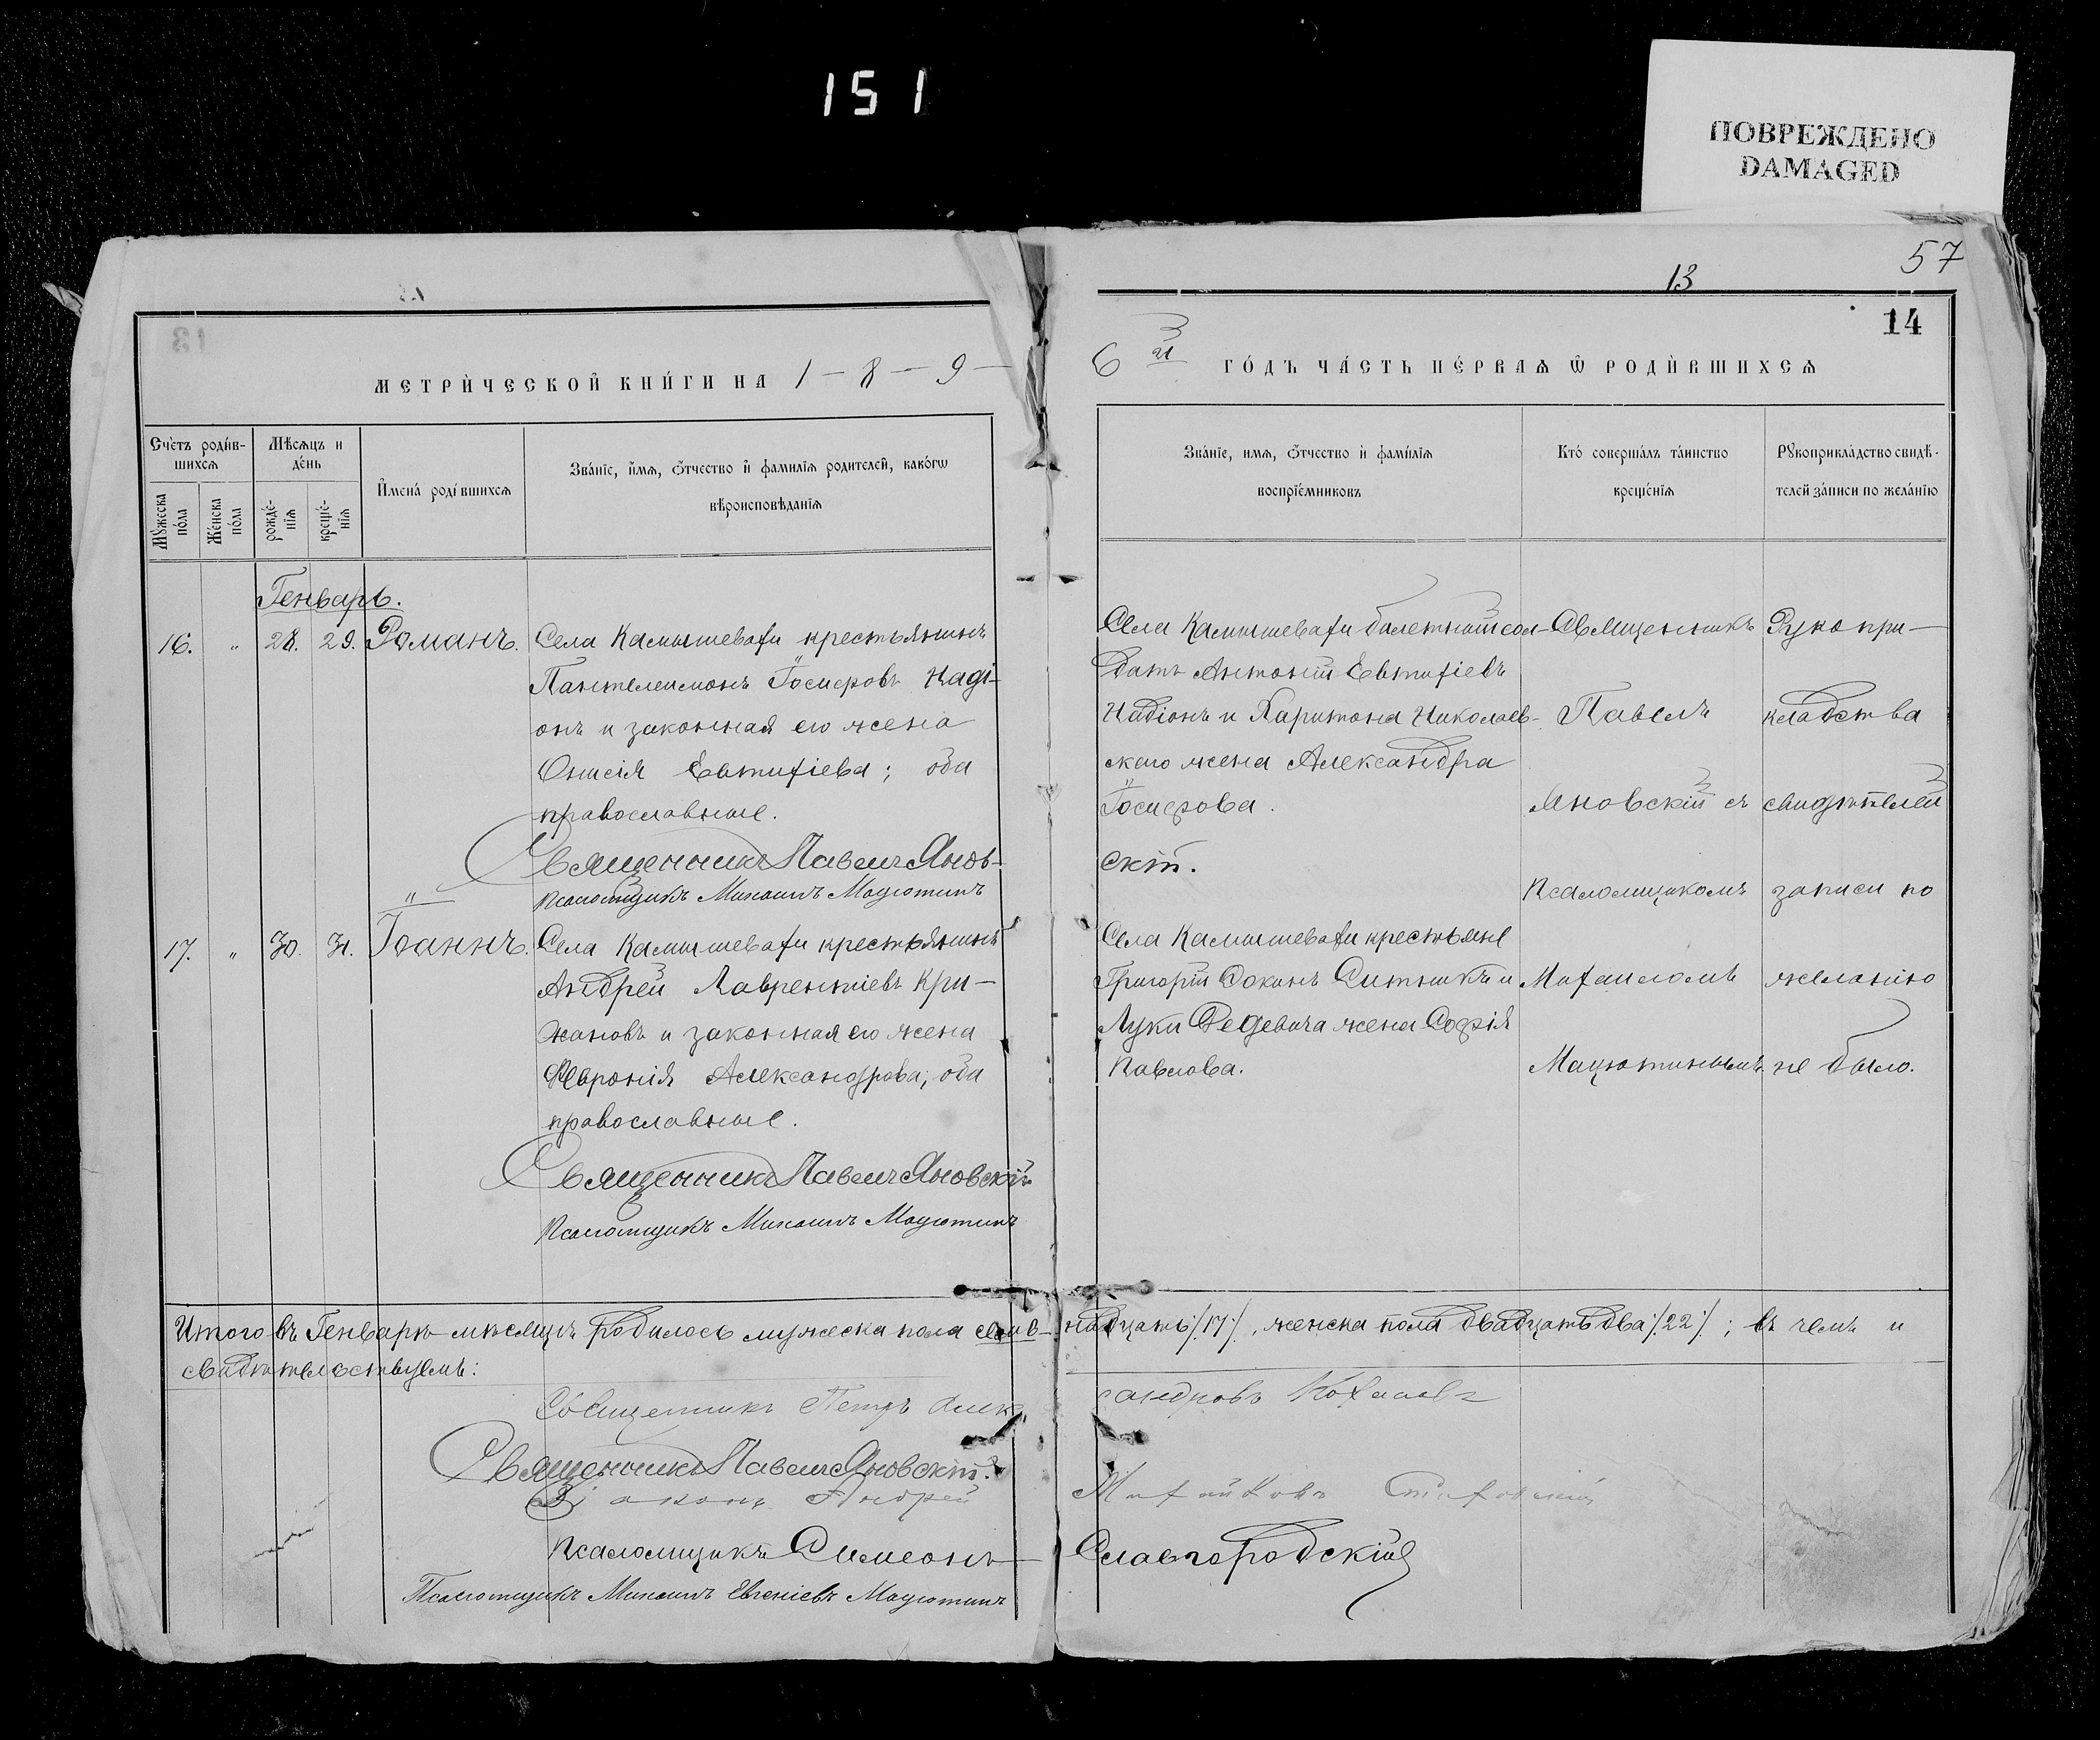 151
ПОВРЕЖДЕНО
DAMAGED
57
13
14
МЕТРИ́ЧЕСКОЙ КНИ́ГИ НА 1 – 8 – 9 –
6й ГО́ДЪ ЧА́СТЬ ПЕ́РВАѦ Ѡ РОДИ́ВШИХСѦ
Сче́тъ роди́в-
шихсѧ
Мꙋ́жеска по́ла
Же́нска по́ла
Мѣ́сѧцъ и
де́нь
рожде́-
нїѧ
креще́-
нїѧ
И҆мена̀ роди́вшихсѧ
Зва́нїе, и҆́мѧ, ѻ҆́тчество и҆ фами́лїѧ роди́телей, како́гѡ
вѣроисповѣ́данїѧ
Зва́нїе, имѧ, ѻ҆́тчество и҆ фами́лїѧ
воспрїе́мниковъ
Кто́ соверша́лъ та́инство
креще́нїѧ
Рꙋкоприкла́дство свидѣ́-
телей за́писи по жела́нїю
Генварь.
16. „ 28. 29. Романъ.
Села Камышевахи крестьянинъ
Пантелеимонъ Іосифовъ Наді-
онъ и законная его жена
Онисія Евтихіева; оба
православные.
Священникъ Павелъ Янов-
Псаломщикъ Михаилъ Мацютинъ
Села Камышевахи билетный сол-
датъ Антоній Евтихіевъ
Надіонъ и Харитона Николаев-
скаго жена Александра
Іосифова.
скій.
17. „ 30. 31. Іоаннъ.
Села Камышевахи крестьянинъ
Андрей Лаврентіевъ Кри-
жановъ и законная его жена
Феоронія Александрова; оба
православные.
Священникъ Павелъ Яновскій
Псаломщикъ Михаилъ Мацютинъ
Села Камышевахи крестьяне
Григорій Ситникъ и
Луки жена Софія
Павлова.
Священникъ
Павелъ
Яновскій съ
псаломщикомъ
Михаиломъ
Мацютинымъ.
Рукопри-
кладства
свидѣтелей
записи по
желанію
не было.
Итого въ Генварѣ мѣсяцѣ родилось мужеска пола сем-
надцать /17/, женска пола двадцать два /22/; въ чемъ и
свидѣтельствуемъ:
Священникъ Петръ Алек-
сандровъ
Священникъ Павелъ Яновскій.
Діаконъ Андрей
Псаломщикъ Симеонъ
Славгородскій
Псаломщикъ Михаилъ Евгеніевъ Мацютинъ